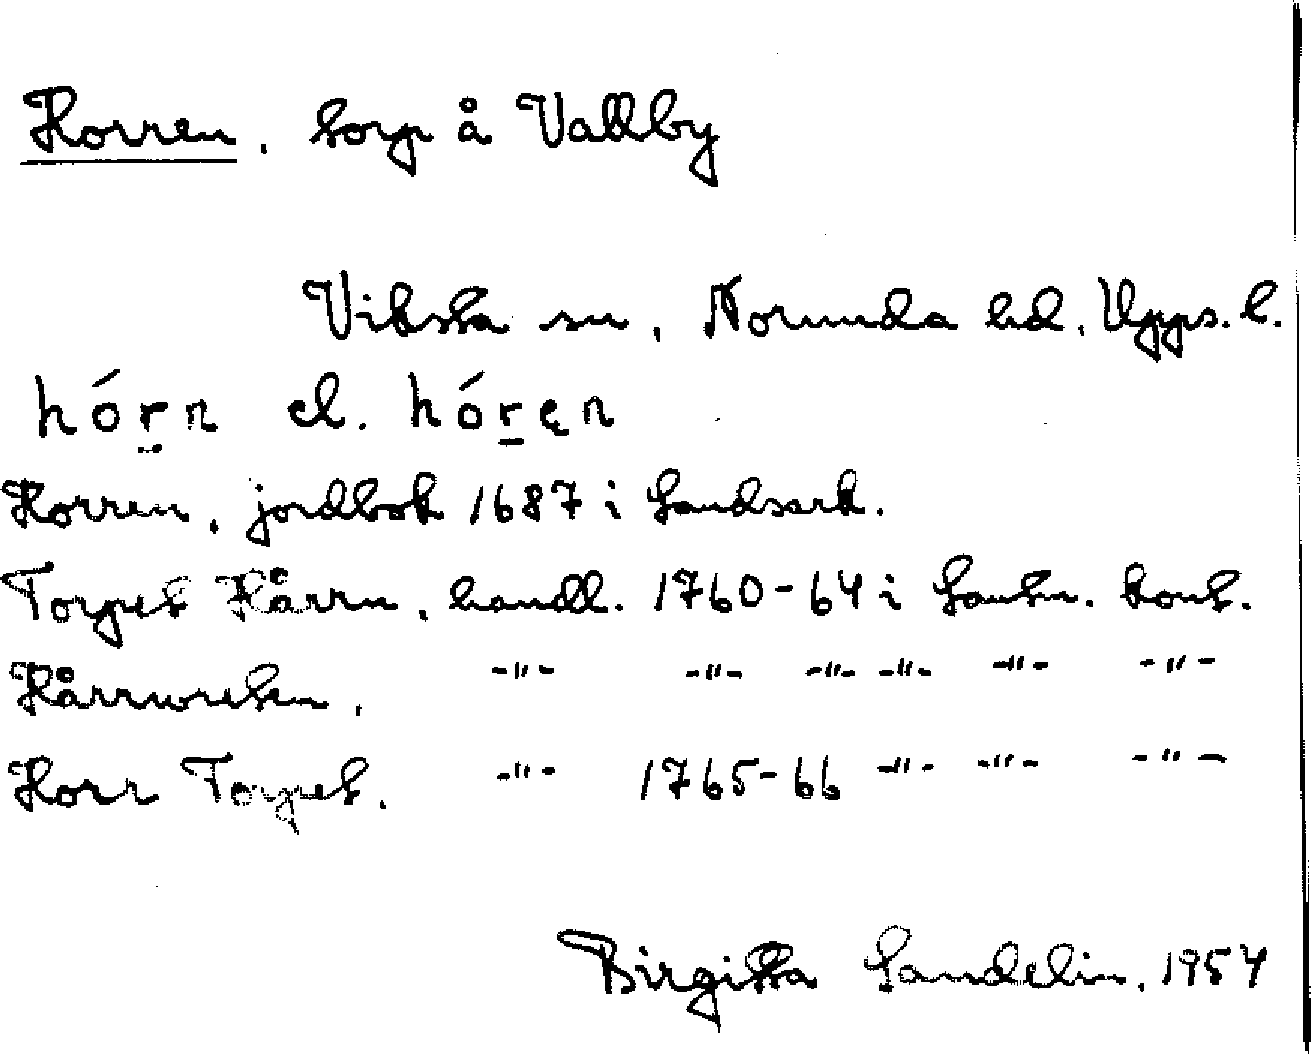 Horren, torp å Vallby
Viksta sn, Norunda hd, Upps. l.
hórn el. hóren
Horren, jordbok 1687 i Landsark.
Torpet Hårrn, handl. 1760-64 i Lantm. kont.
-"- -"- -"- -"- -"- -"-
Horr Torpet, -"- 1765-66 -"- -"- -"-
Birgitta Sandelin, 1954